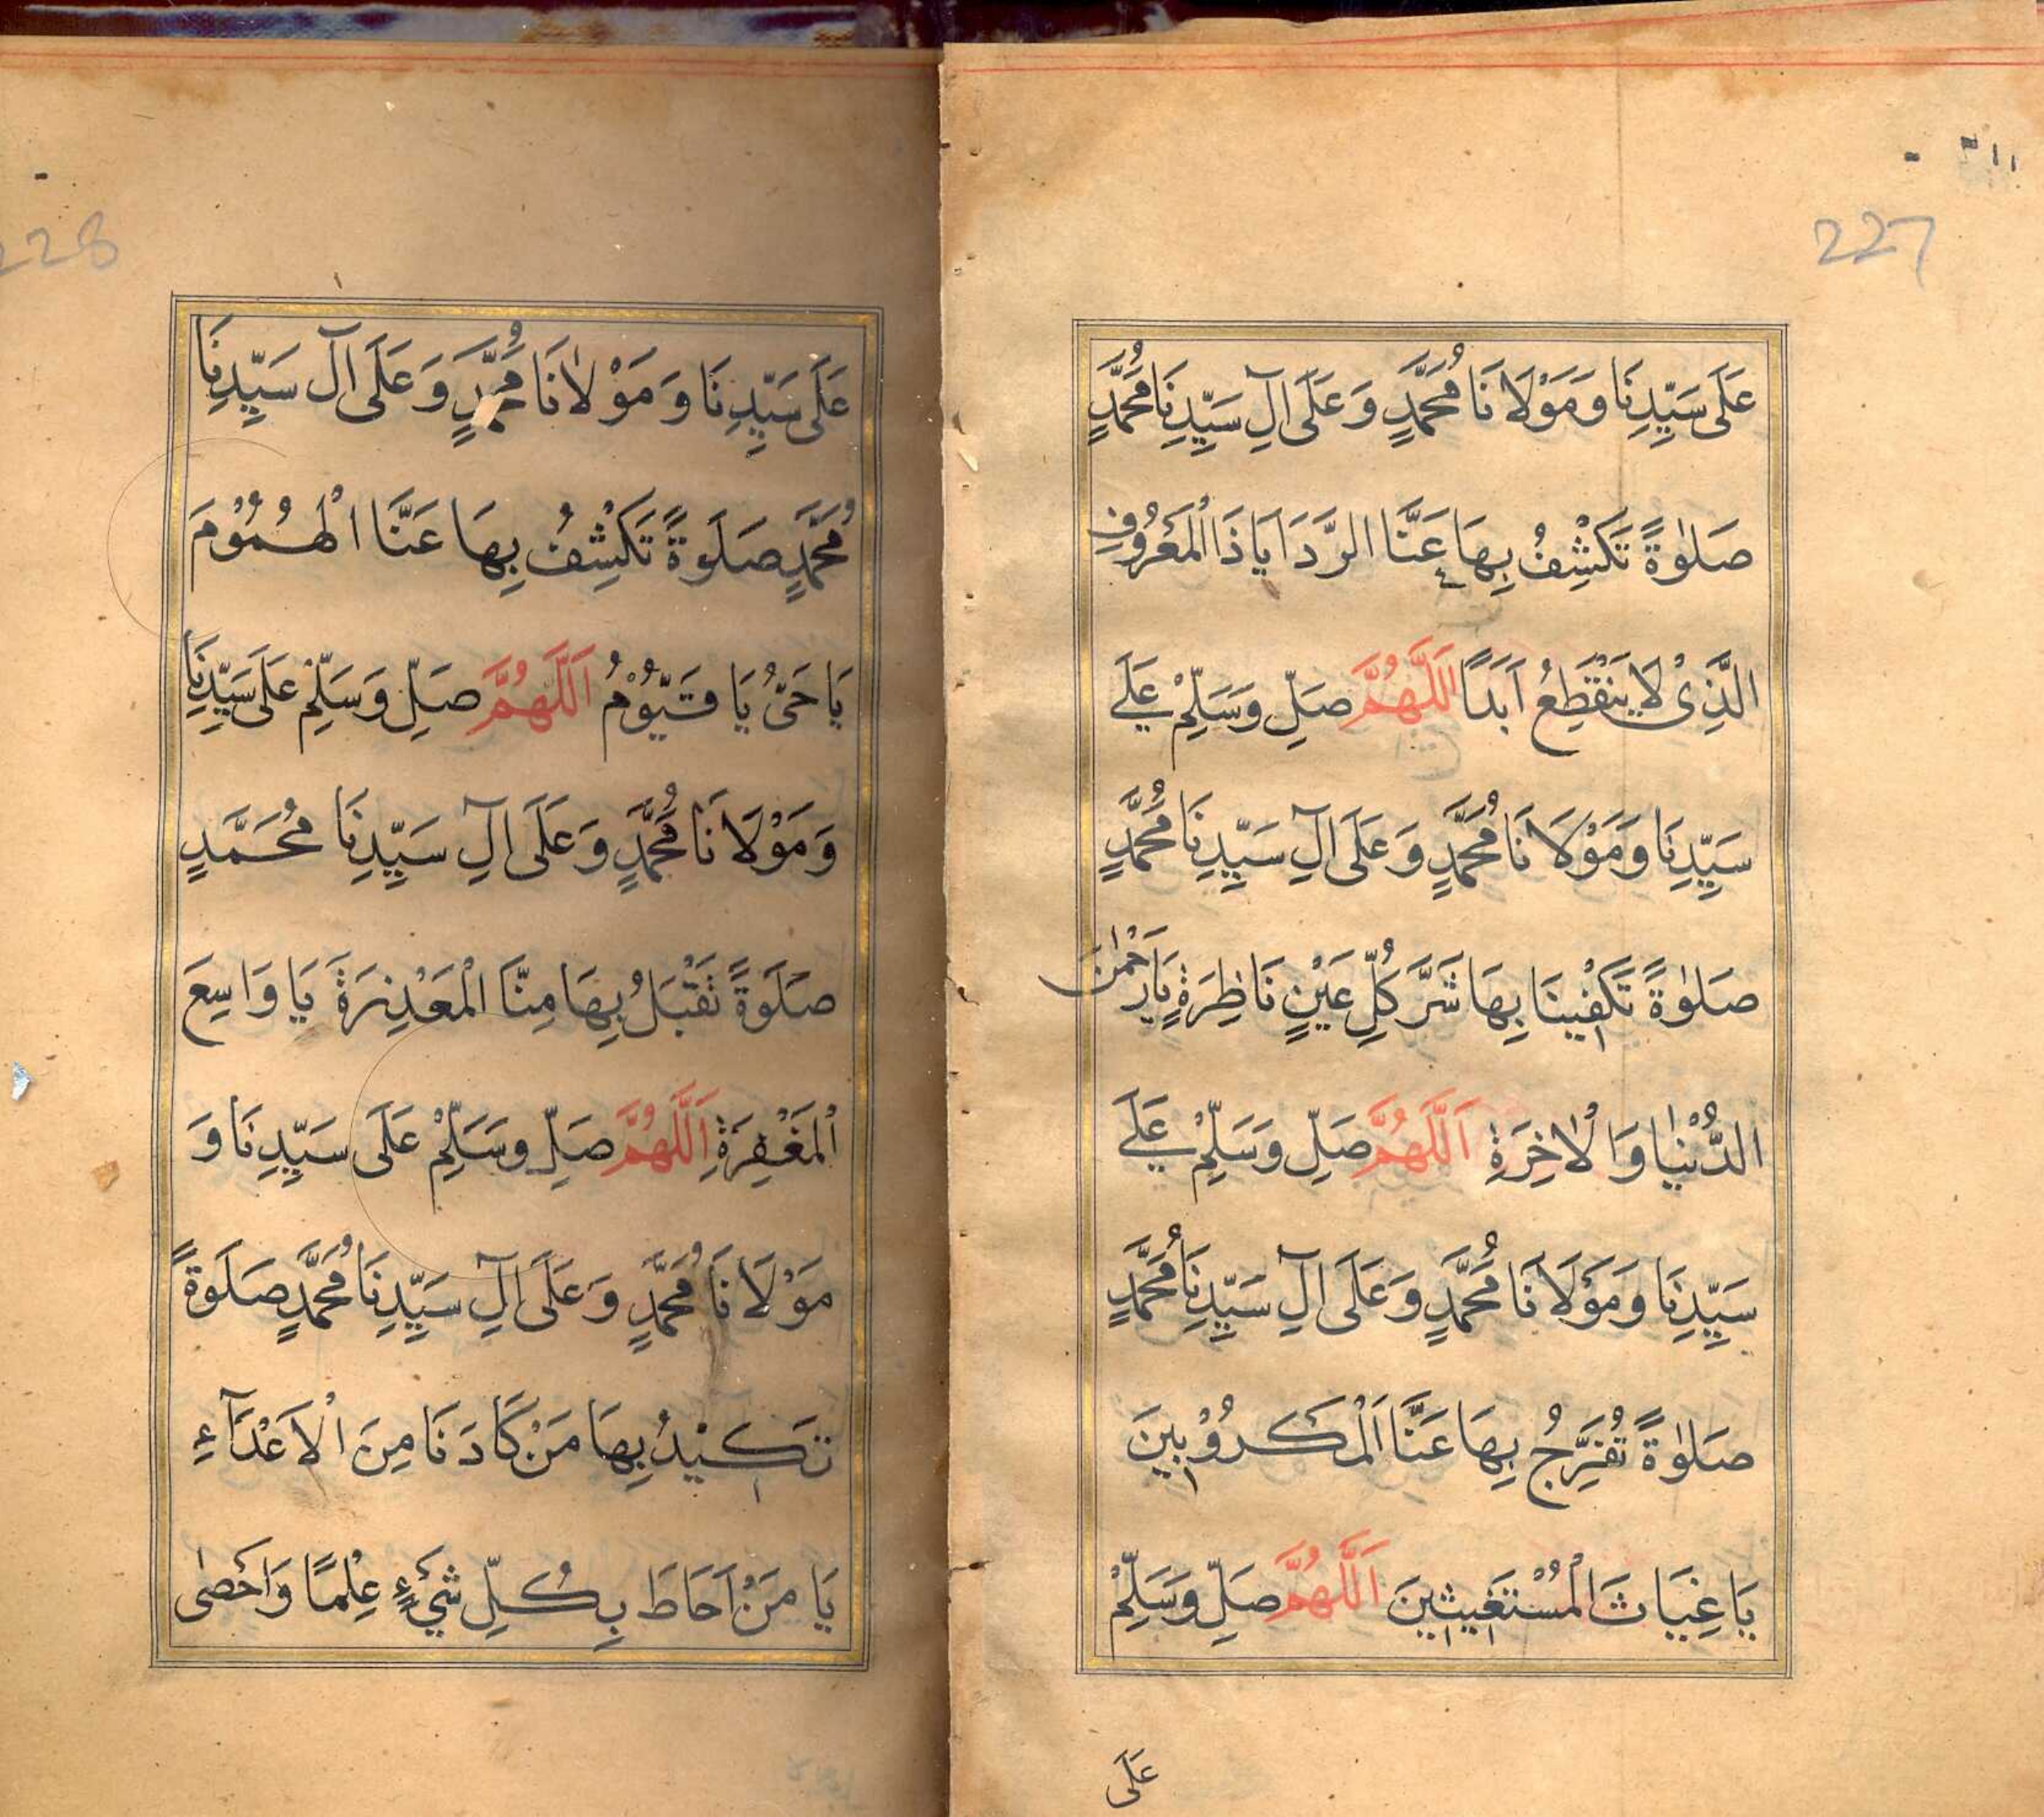 227
عَلَى سَيِّدِنَا وَمَوْلَانَا مُحَمَّدٍ وَعَلَى آلِ سَيِّدِنَا مُحَمَّدٍ
صَلٰوةً تَكْشِفُ بِهَا عَنَّا الرَّدَايَا ذَا الْمَعْرُوفِ
الَّذِىْ لَا يَنْقَطِعُ اَبَدًا اَللَّهُمَّ صَلِّ وَسَلِّمْ عَلٰے
سَيِّدِنَا وَمَوْلَانَا مُحَمَّدٍ وَعَلَى آلِ سَيِّدِنَا مُحَمَّدٍ
صَلٰوةً تَكْفِينَا بِهَا شَرَّ كُلِّ عَيْنٍ نَاظِرَةٍ يَارَحْمٰنَ
الدُّنْيَا وَالْاٰخِرَةِ اَللَّهُمَّ صَلِّ وَسَلِّمْ عَلَے
سَيِّدِنَا وَمَوْلَانَا مُحَمَّدٍ وَعَلَى آلِ سَيِّدِنَا مُحَمَّدٍ
صَلٰوةً تُفَرِّجُ بِهَا عَنَّا اَلْمَكْرُوْبِينَ
يَا غِيَاثَ الْمُسْتَغِيثِينَ اَللَّهُمَّ صَلِّ وَسَلِّمْ
عَلَى
228
عَلَى سَيِّدِنَا وَمَوْلَانَا مُحَمَّدٍ وَعَلَى آلِ سَيِّدِنَا
مُحَمَّدٍ صَلَوةً تَكْشِفُ بِهَا عَنَّا الْهُمُوْمَ
يَا حَىُّ يَا قَيُّوْمُ اَللَّهُمَّ صَلِّ وَسَلِّمْ عَلَى سَيِّدِنَا
وَمَوْلَانَا مُحَمَّدٍ وَعَلَى آلِ سَيِّدِنَا مُحَمَّدٍ
صَلَوةً تَقْبَلُ بِهَا مِنَّا الْمَعْذِرَةَ يَا وَاسِعَ
الْمَغْفِرَةِ اَللَّهُمَّ صَلِّ وَسَلِّمْ عَلَى سَيِّدِنَا وَ
مَوْلَانَا مُحَمَّدٍ وَعَلَى آلِ سَيِّدِنَا مُحَمَّدٍ صَلَوةً
تَكِيْدُ بِهَا مَنْ كَادَنَا مِنَ الْاَعْدَآءِ
يَا مَنْ اَحَاطَ بِكُلِّ شَيْءٍ عِلْمًا وَاَحْصٰى